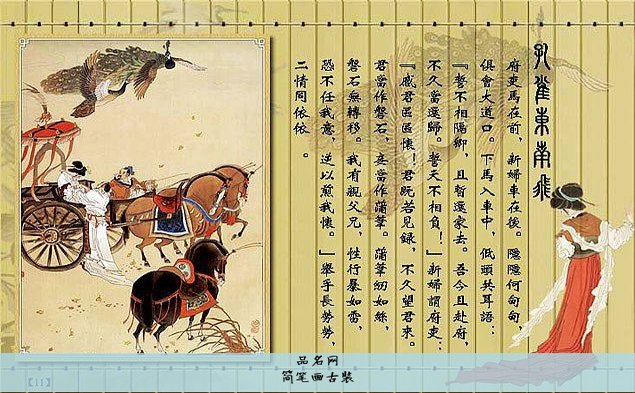 孔雀東南飛
府吏馬在前，新婦車在後。隱隱何甸甸，
俱會大道口。下馬入車中，低頭共耳語：
『誓不相隔卿，且暫還家去。吾今且赴府，
不久當還歸。誓天不相負！』新婦謂府吏：
『感君區區懷！君既若見錄，不久望君來。
君當作磐石，妾當作蒲葦。蒲葦紉如絲，
磐石無轉移。我有親父兄，性行暴如雷，
恐不任我意，逆以煎我懷。』舉手長勞勞，
二情同依依。
品名网
简笔画古装
【11】